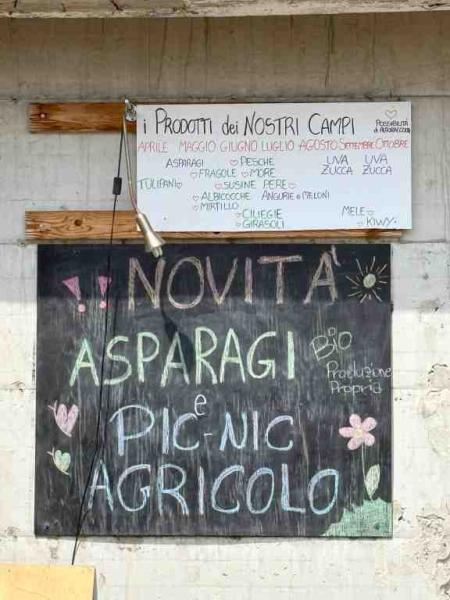 i PRODOTTI dei NOSTRI CAMPI
POSSIBILITÀ
di AUTORACCOLTA
APRILE MAGGIO GIUGNO LUGLIO AGOSTO SETTEMBRE OTTOBRE
ASPARAGI PESCHE UVA UVA
FRAGOLE MORE ZUCCA ZUCCA
TULIPANI SUSINE PERE
ALBICOCCHE ANGURIE e MELONI
MIRTILLO
CILIEGIE MELE
GIRASOLI KIWY
NOVITÀ
ASPARAGI
BIO
Produzione
Propria
e
PIC-NIC
AGRICOLO